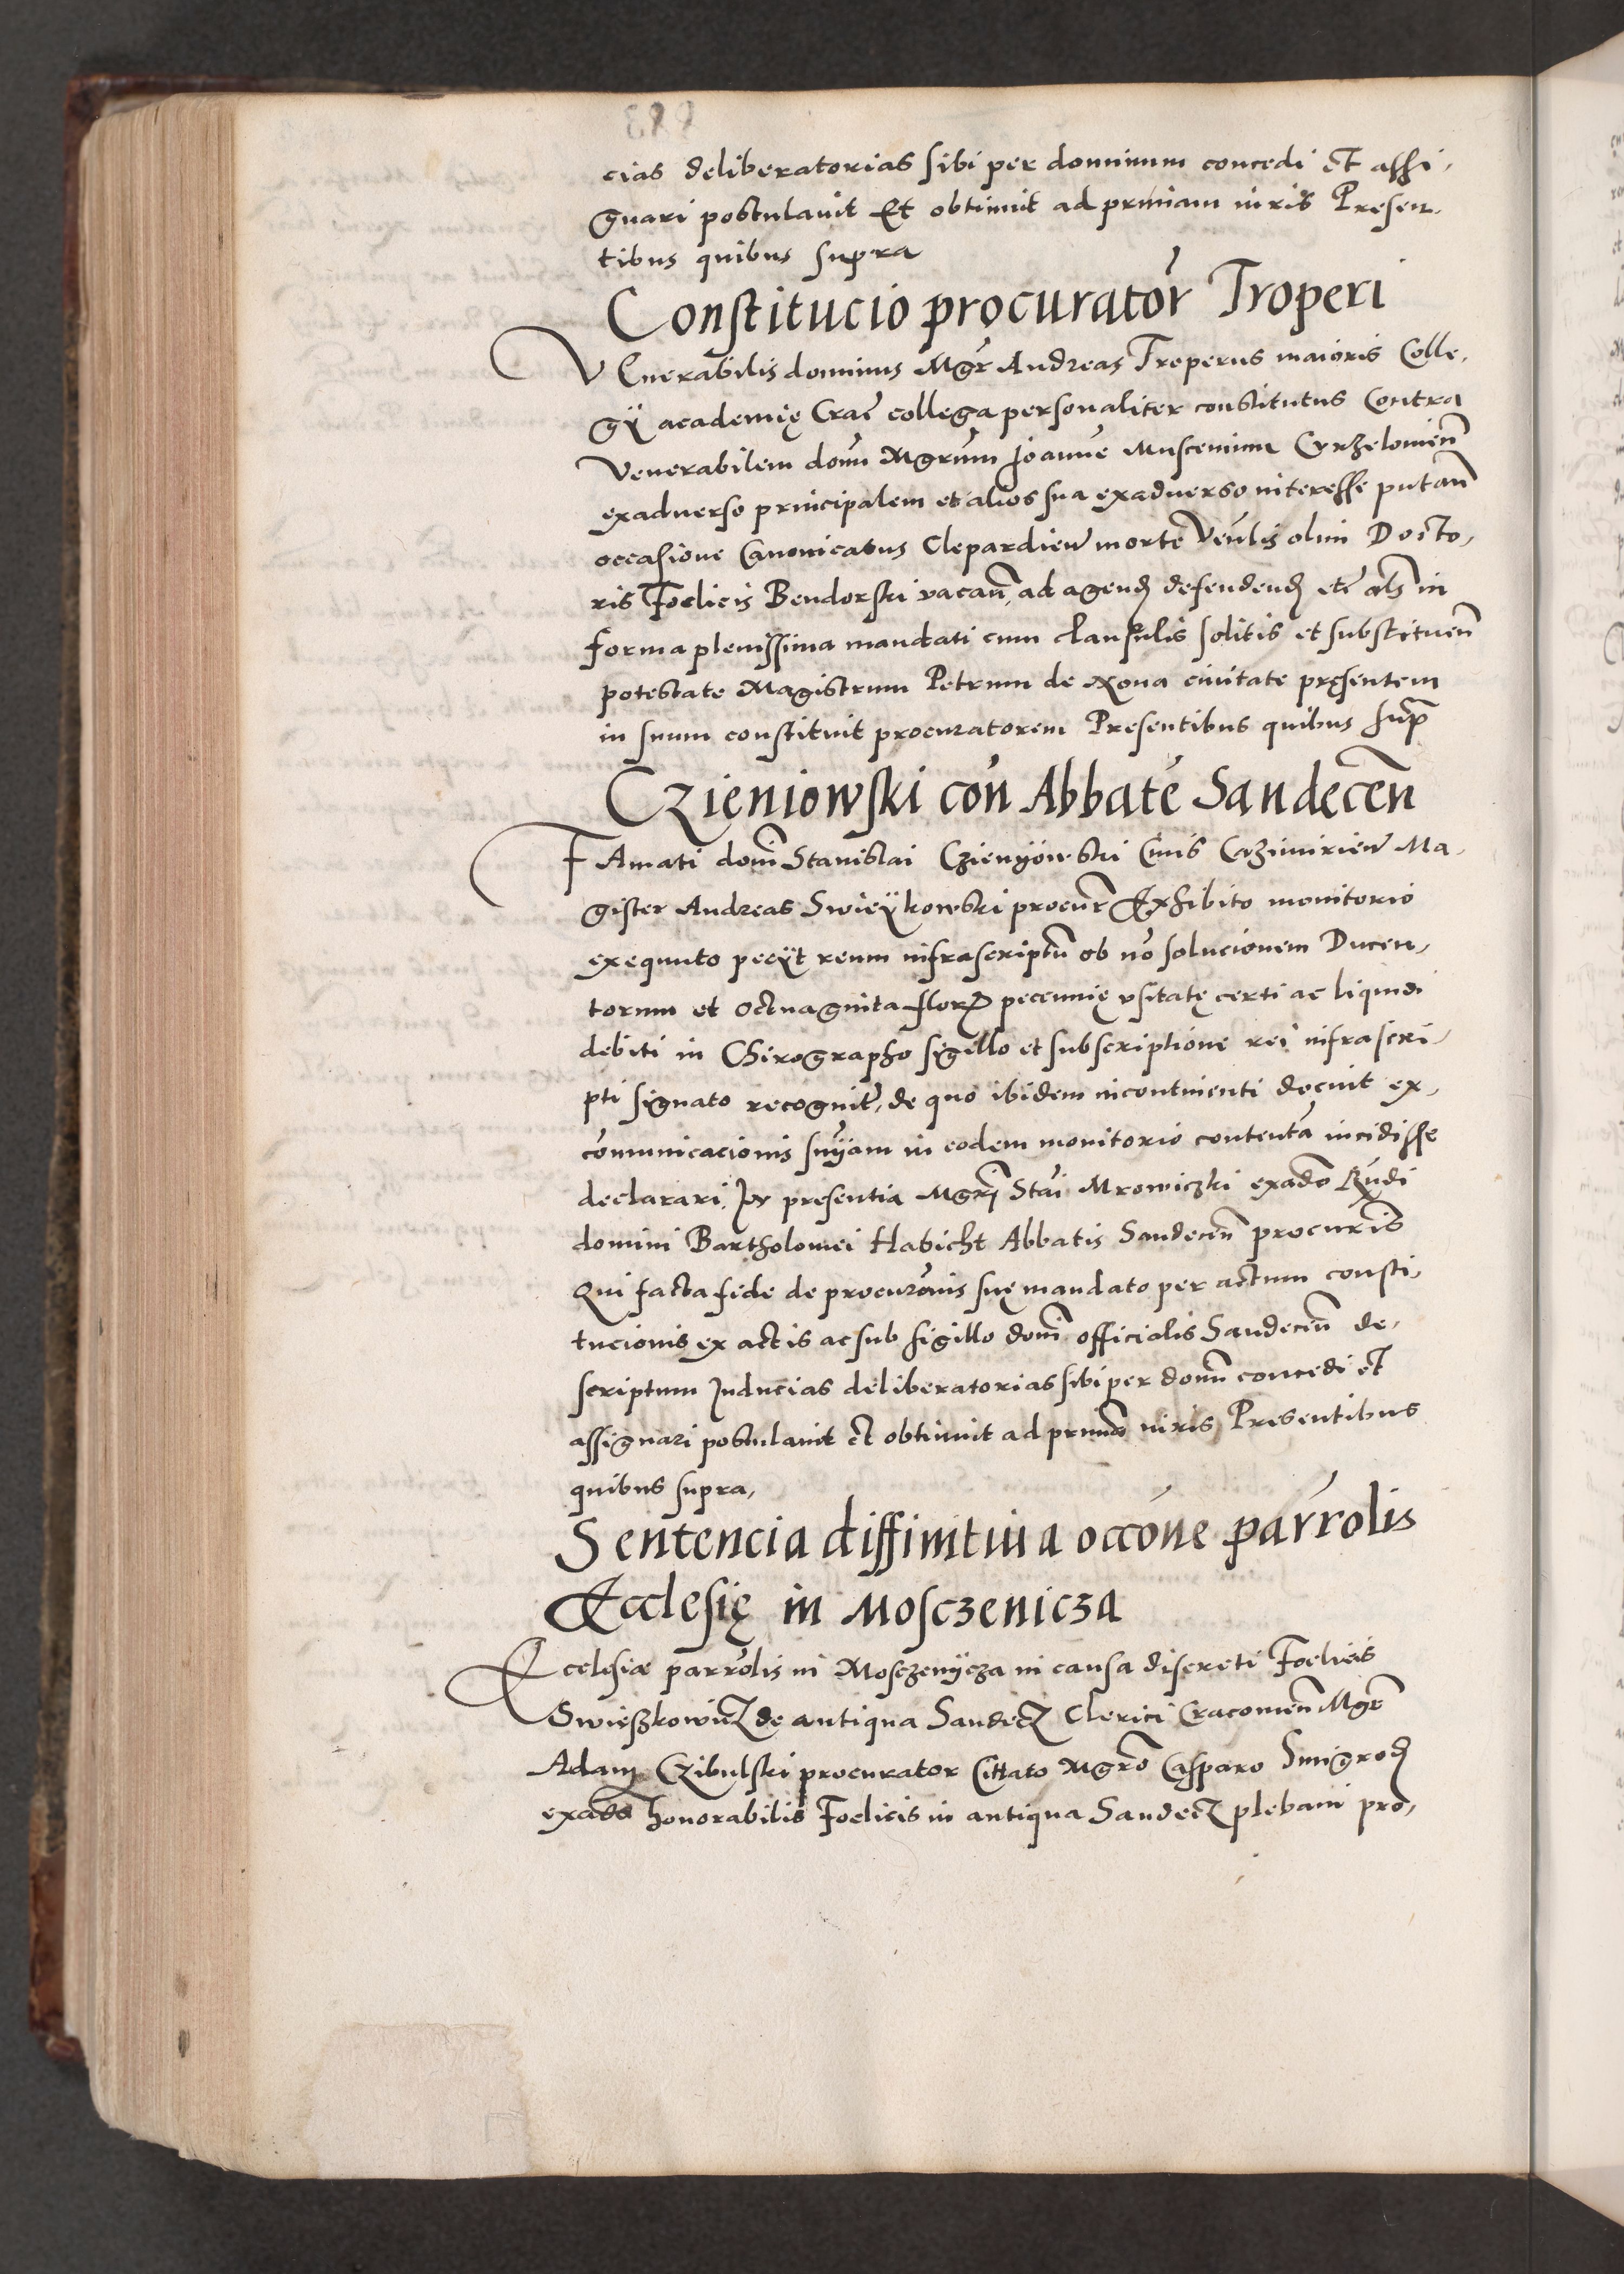 cias deliberatorias sibi per dominum concedi et assi,
gnari postulauit Et obtinuit ad primam iuris Presen,
tibus quibus supra
Constitucio procurator Troperi
VEnerabilis dominus Mgr Andreas Troperus maioris Colle,
gÿ academię Crac̄ collega personaliter constitutus Contra
Venerabilem dom̄ Mgrum Joannē Muscenium Curzelouien̄
exaduerso principalem et alios sua exaduerso interesse putan̄
occasione Canonicatus Clepardien̄ morte Ven̄lis olim Docto,
ris Foelicis Bendorski vacan̄, ad agend̄ defendend̄ etc̄ als̄ in
forma plenissima mandati cum clausulis solitis et substituen̄
potestate Magistrum Petrum de Xona ciuitate pręsentem
in suum constituit procuratorem Presentibus quibus sup̄
CZieniowski con̄ Abbatē Sandęcen̄
FAmati dom̄ Stanislai Czienÿowski Ciuis Cazimirien̄ Ma,
gister Andreas Swieÿkowski procur̄ Exhibito monitorio
exequuto pecÿt reum infrascriptū ob nō solucionem Ducen,
torum et octuaginta flor̄ pecunię vsitatę certi ac liquidi
debiti in Chirographo sigello et subscriptione rei infrascri,
pti signato recognit̄, de quo ibidem incontinenti docuit ex,
cōmunicacionis snÿam in eodem monitorio contentā incidisse
declarari. In presentia Mgri Stāi Mrowiczki exadō Rūdi
domini Bartholomei Habicht Abbatis Sandecen̄ procuris̄
Qui facta fide de procurōnis suę mandato per actum consti,
tucionis ex actis ac sub sigillo dom̄ officialis Sandecen̄ de,
scriptum Inducias deliberatorias sibi per dom̄ concedi et
assignari postulauit et obtinuit ad primā iuris Presentibus
quibus supra,
Sentencia diffinitiua occōne parrōlis
Ecclesię in Mosczenicza
Ecclesiæ parrōlis in Mosczenÿcza in causa discreti Foelicis
Swieszkowicz de antiqua Sandecz Clerici Cracouien̄ Mgr̄
Adam Czibulski procurator Cittato Mgrō Casparo Smigrod̄
exadō honorabilis Foelicis in antiqua Sandecz plebani pro,